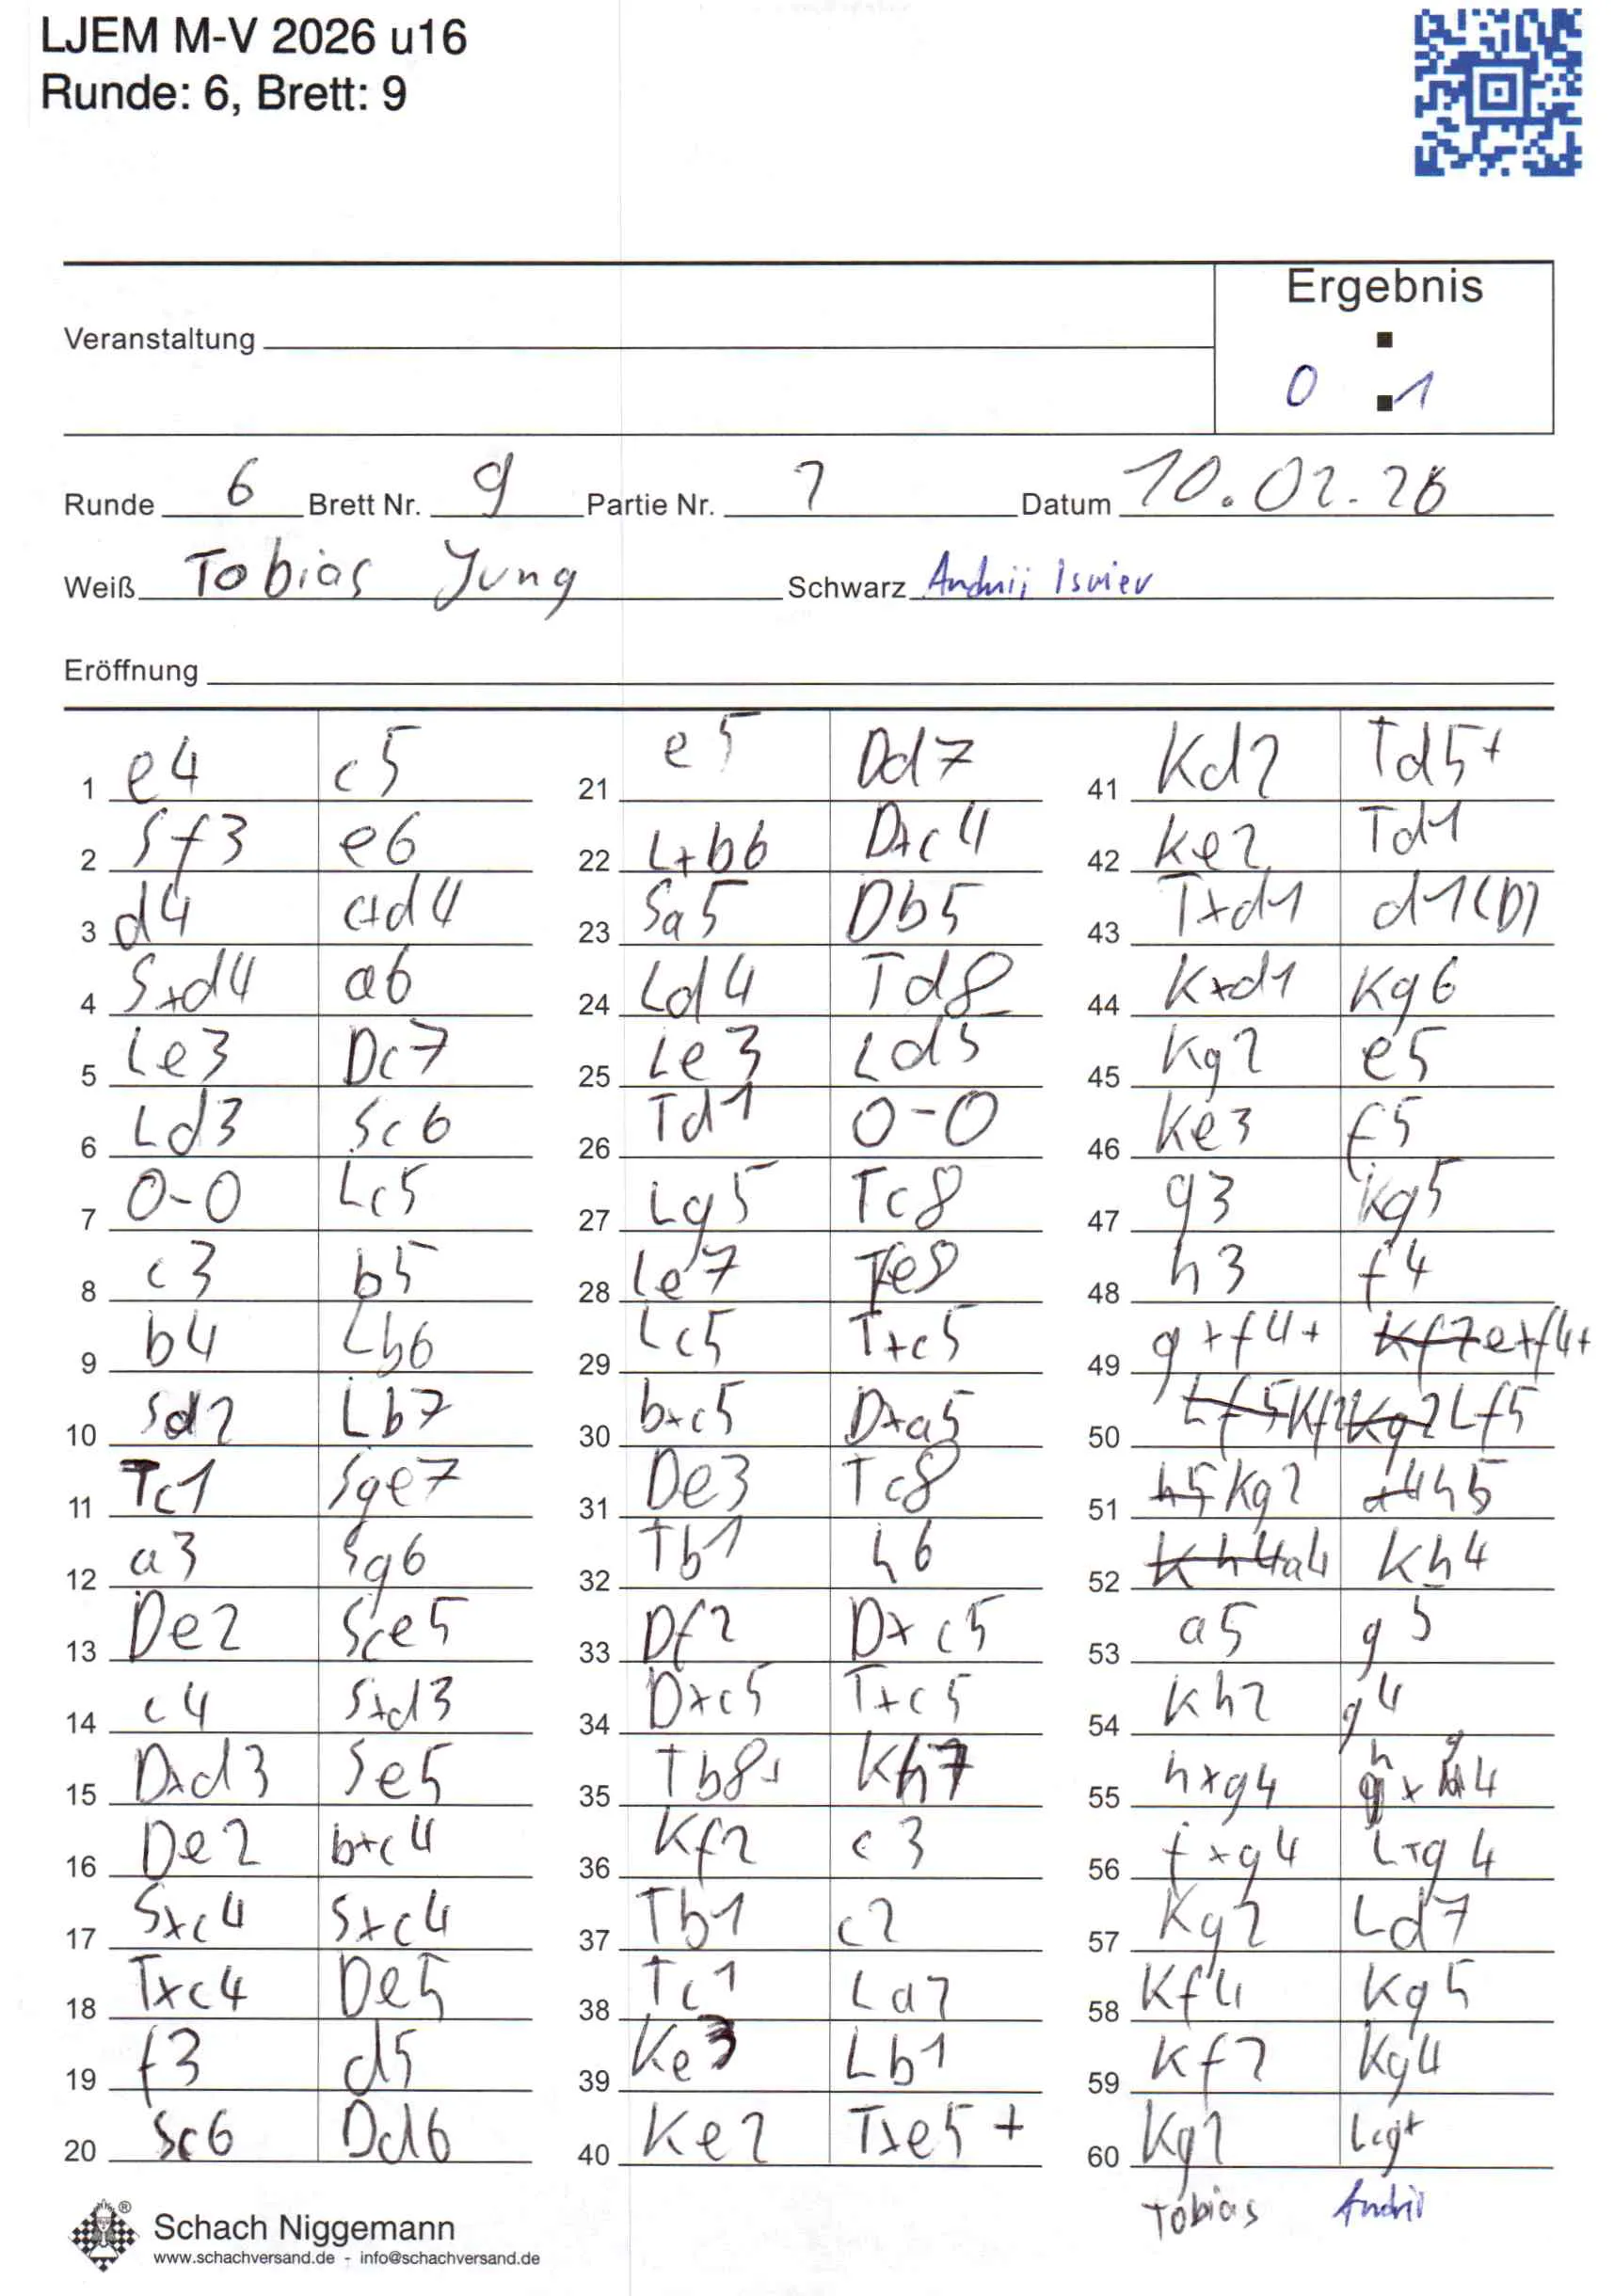 LJEM M-V 2026 u16
Runde: 6, Brett: 9
Ergebnis
Veranstaltung
0 : 1
Runde 6 Brett Nr. 9 Partie Nr. 7 Datum 10.02.26
Weiß Tobias Jung Schwarz Andrii
Eröffnung
1 e4 c5
2 Sf3 e6
3 d4 cxd4
4 Sxd4 a6
5 Le3 Dc7
6 Ld3 Sc6
7 0-0 Lc5
8 c3 b5
9 b4 Lb6
10 Sd2 Lb7
11 Tc1 Sge7
12 a3 Sg6
13 De2 Sce5
14 c4 Sxd3
15 Dxd3 Se5
16 De2 bxc4
17 Sxc4 Sxc4
18 Txc4 De5
19 f3 d5
20 Sc6 Dd6
21 e5 Dd7
22 Lxb6 Dxc4
23 Sa5 Db5
24 Ld4 Td8
25 Le3 Ld5
26 Td1 0-0
27 Lg5 Tc8
28 Le7 Tfe8
29 Lc5 Txc5
30 bxc5 Dxa5
31 De3 Tc8
32 Tb1 h6
33 Df2 Dxc5
34 Dxc5 Txc5
35 Tb8+ Kh7
36 Kf2 c3
37 Tb1 c2
38 Tc1 La2
39 Ke3 Lb1
40 Ke2 Txe5+
41 Kd2 Td5+
42 Ke2 Td1
43 Txd1 d1(D)
44 Kxd1 Kg6
45 Kg2 e5
46 Ke3 f5
47 g3 Kg5
48 h3 f4
49 gxf4+ exf4+
50 Kf2 Lf5
51 Kg2 h5
52 a4 Kh4
53 a5 g5
54 Kh2 g4
55 hxg4 hxg4
56 fxg4 Lxg4
57 Kg2 Ld7
58 Kf4 Kg5
59 Kf2 Kg4
60 Kg2
Tobias Andrii
Schach Niggemann
www.schachversand.de - info@schachversand.de